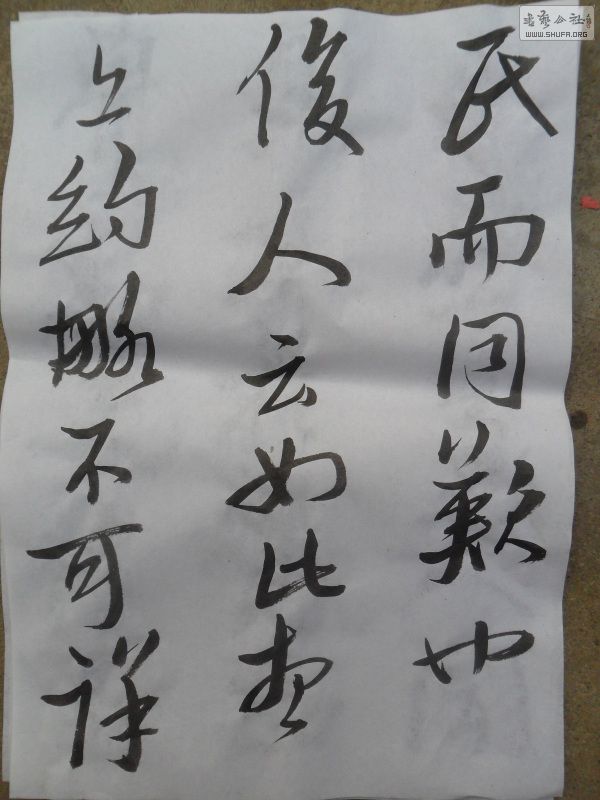 書藝公社
WWW.SHUFA.ORG
民而同歎也
俊人云如此想
上約略不可詳